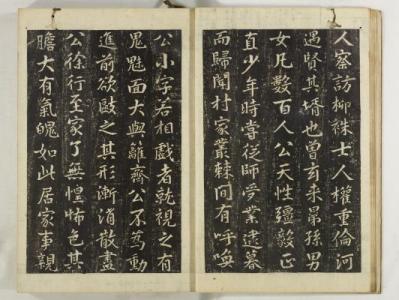 人察訪柳祩士人權重倫河
遇賢其壻也曾玄来昆孫男
女凡數百人公天性彊毅正
直少年時嘗従師學業逮暮
而歸聞村家叢棘間有呼嘜
公小字若相戱者就視之有
鬼魋面大與籬齊公不為動
進前欲敺之其形漸消散盡
公徐行至家了無惶怖色其
膽大有氣魄如此居家事親